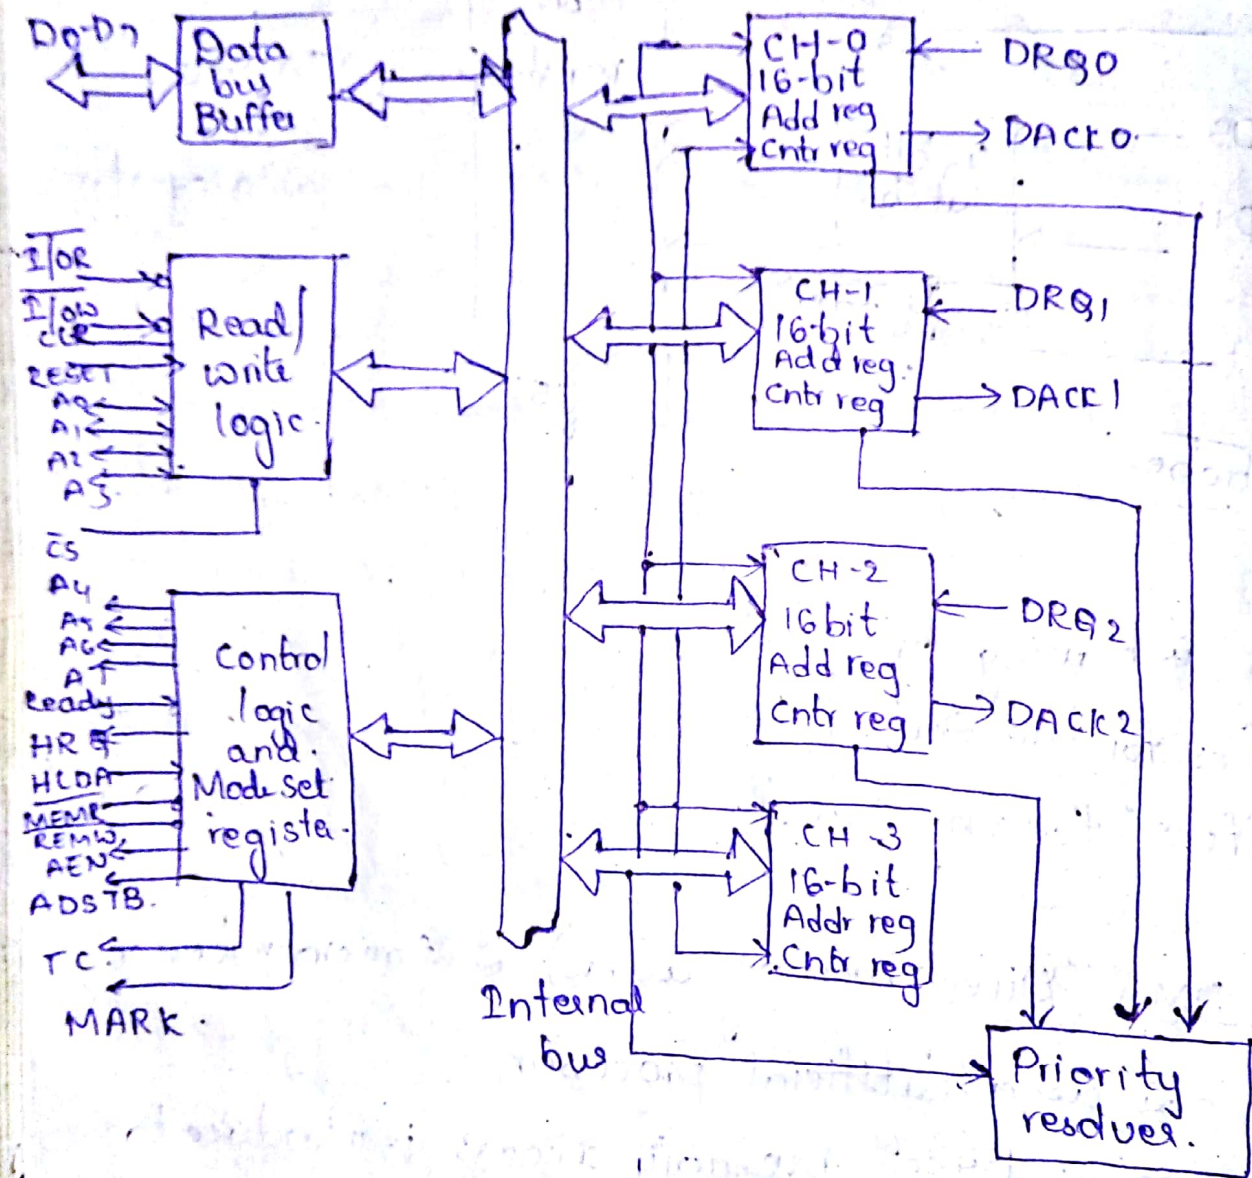 D0-D7
Data
bus
Buffer
I/OR
I/OW
CLR
RESET
A0
A1
A2
A3
CS
Read/
write
logic
A4
A5
A6
A7
Ready
HRQ
HLDA
MEMR
REMW
AEN
ADSTB
TC
MARK
Control
logic
and
Mode set
register
Internal
bus
CH-0
16-bit
Add reg
Cntr reg
DRQ0
DACK0
CH-1
16-bit
Add reg
Cntr reg
DRQ1
DACK1
CH-2
16bit
Add reg
Cntr reg
DRQ2
DACK2
CH-3
16-bit
Addr reg
Cntr reg
Priority
resolver.